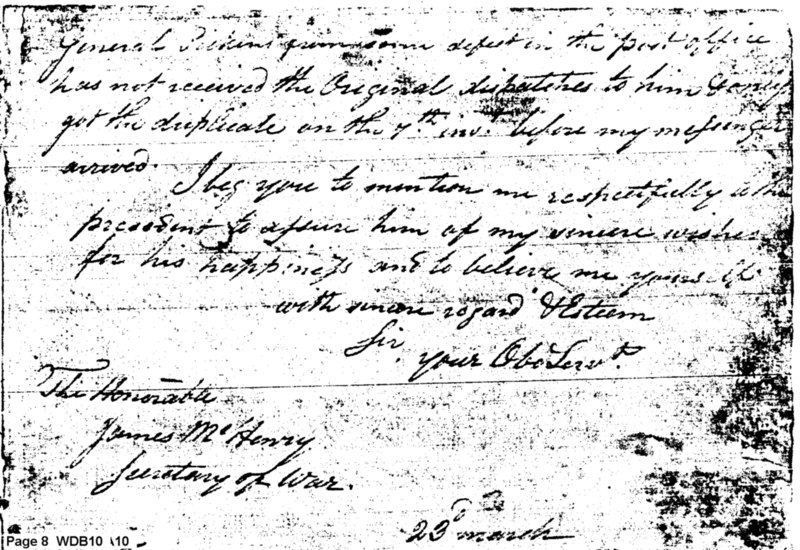 General Pickens from some defect in the post office
has not received the Original dispatches to him & only
got the duplicate on the 7th inst. before my messenger
arrived.
I beg you to mention me respectfully to the
president to assure him of my sincere wishes
for his happiness and to believe me yourself
with sincere regard & Esteem
Sir
your Obt Servt.
The Honorable
James McHenry
Secretary of War.
23d march
Page 8 WDB10 10